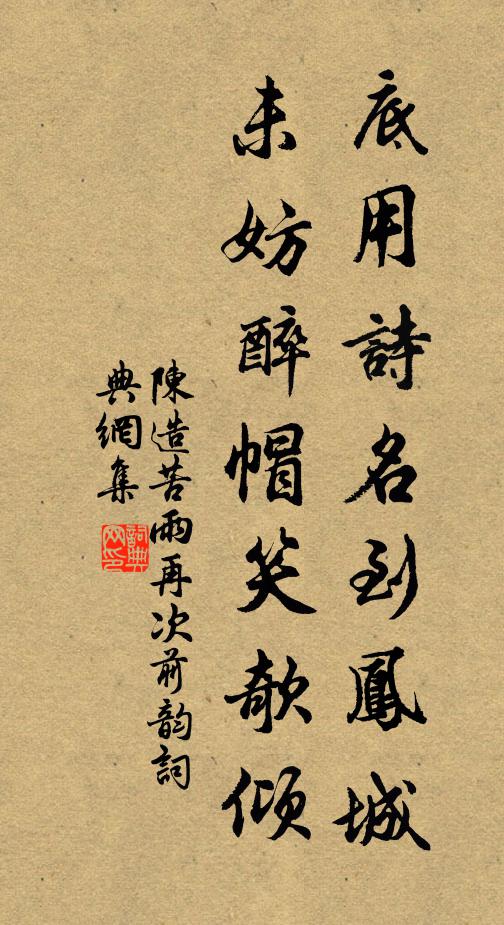 底用詩名到鳳城
未妨醉帽笑欹傾
陳造苦雨再次前韵詞
典網集
詞典網印